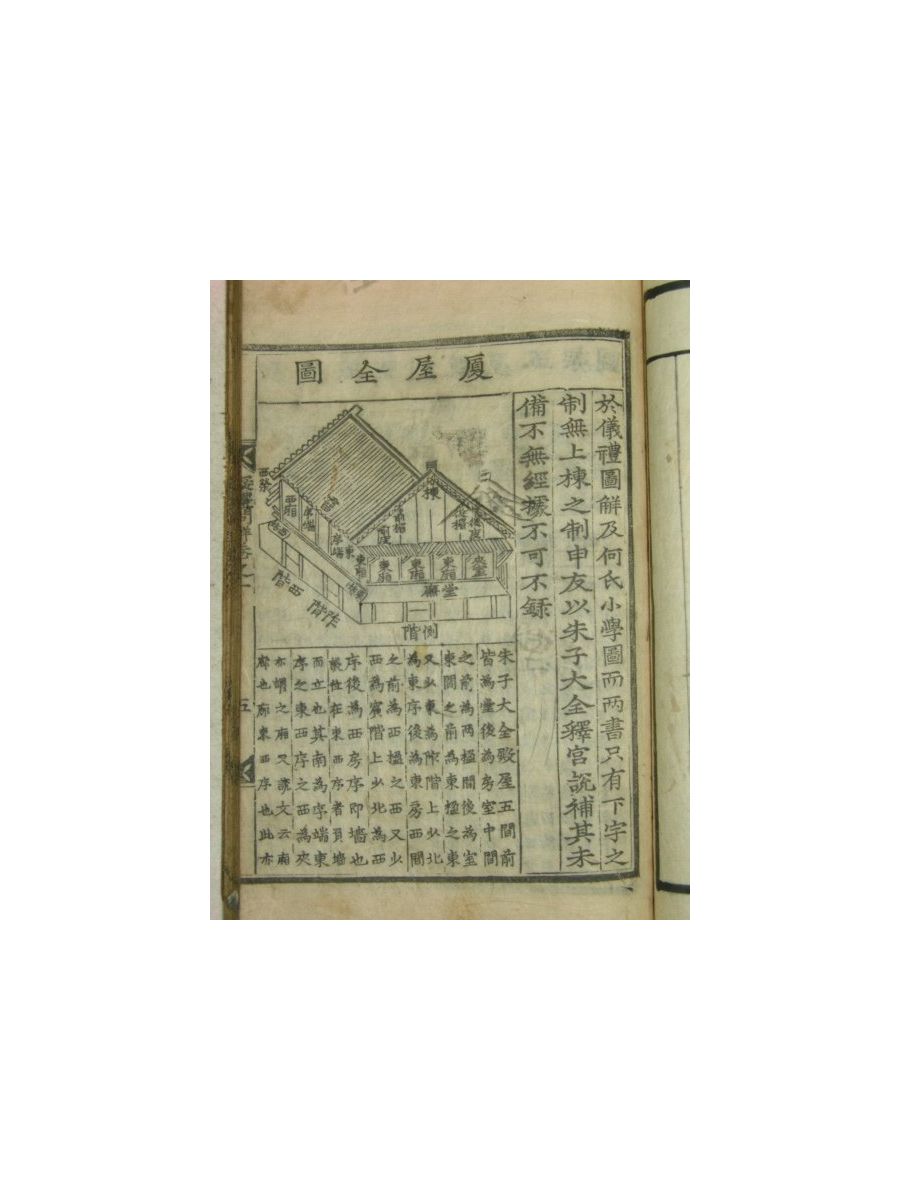 於儀禮圖解及何氏小學圖而兩書只有下宇之
制無上棟之制申友以朱子大全釋宮說補其未
備不無經據不可不錄
厦屋全圖
西榮
西廂
序端
霤
序端
東
東廂
前楣
棟
後楣
東廂
東廂
東廂
夾室
堂廉
西階
阼階
側階
朱子大全殿屋五間前
皆為堂後為房室中間
之前為兩楹間後為室
東間之前為東楹之東
又少東為阼階上少北
為東序後為東房西間
之前為西楹之西又少
西為賓階上少北為西
序後為西房序即墻也
設位在東西序者負墻
而立也其南為序端東
序之東西序之西為夾
亦謂之廂又說文云廂
廊也廊東西序也此亦
五